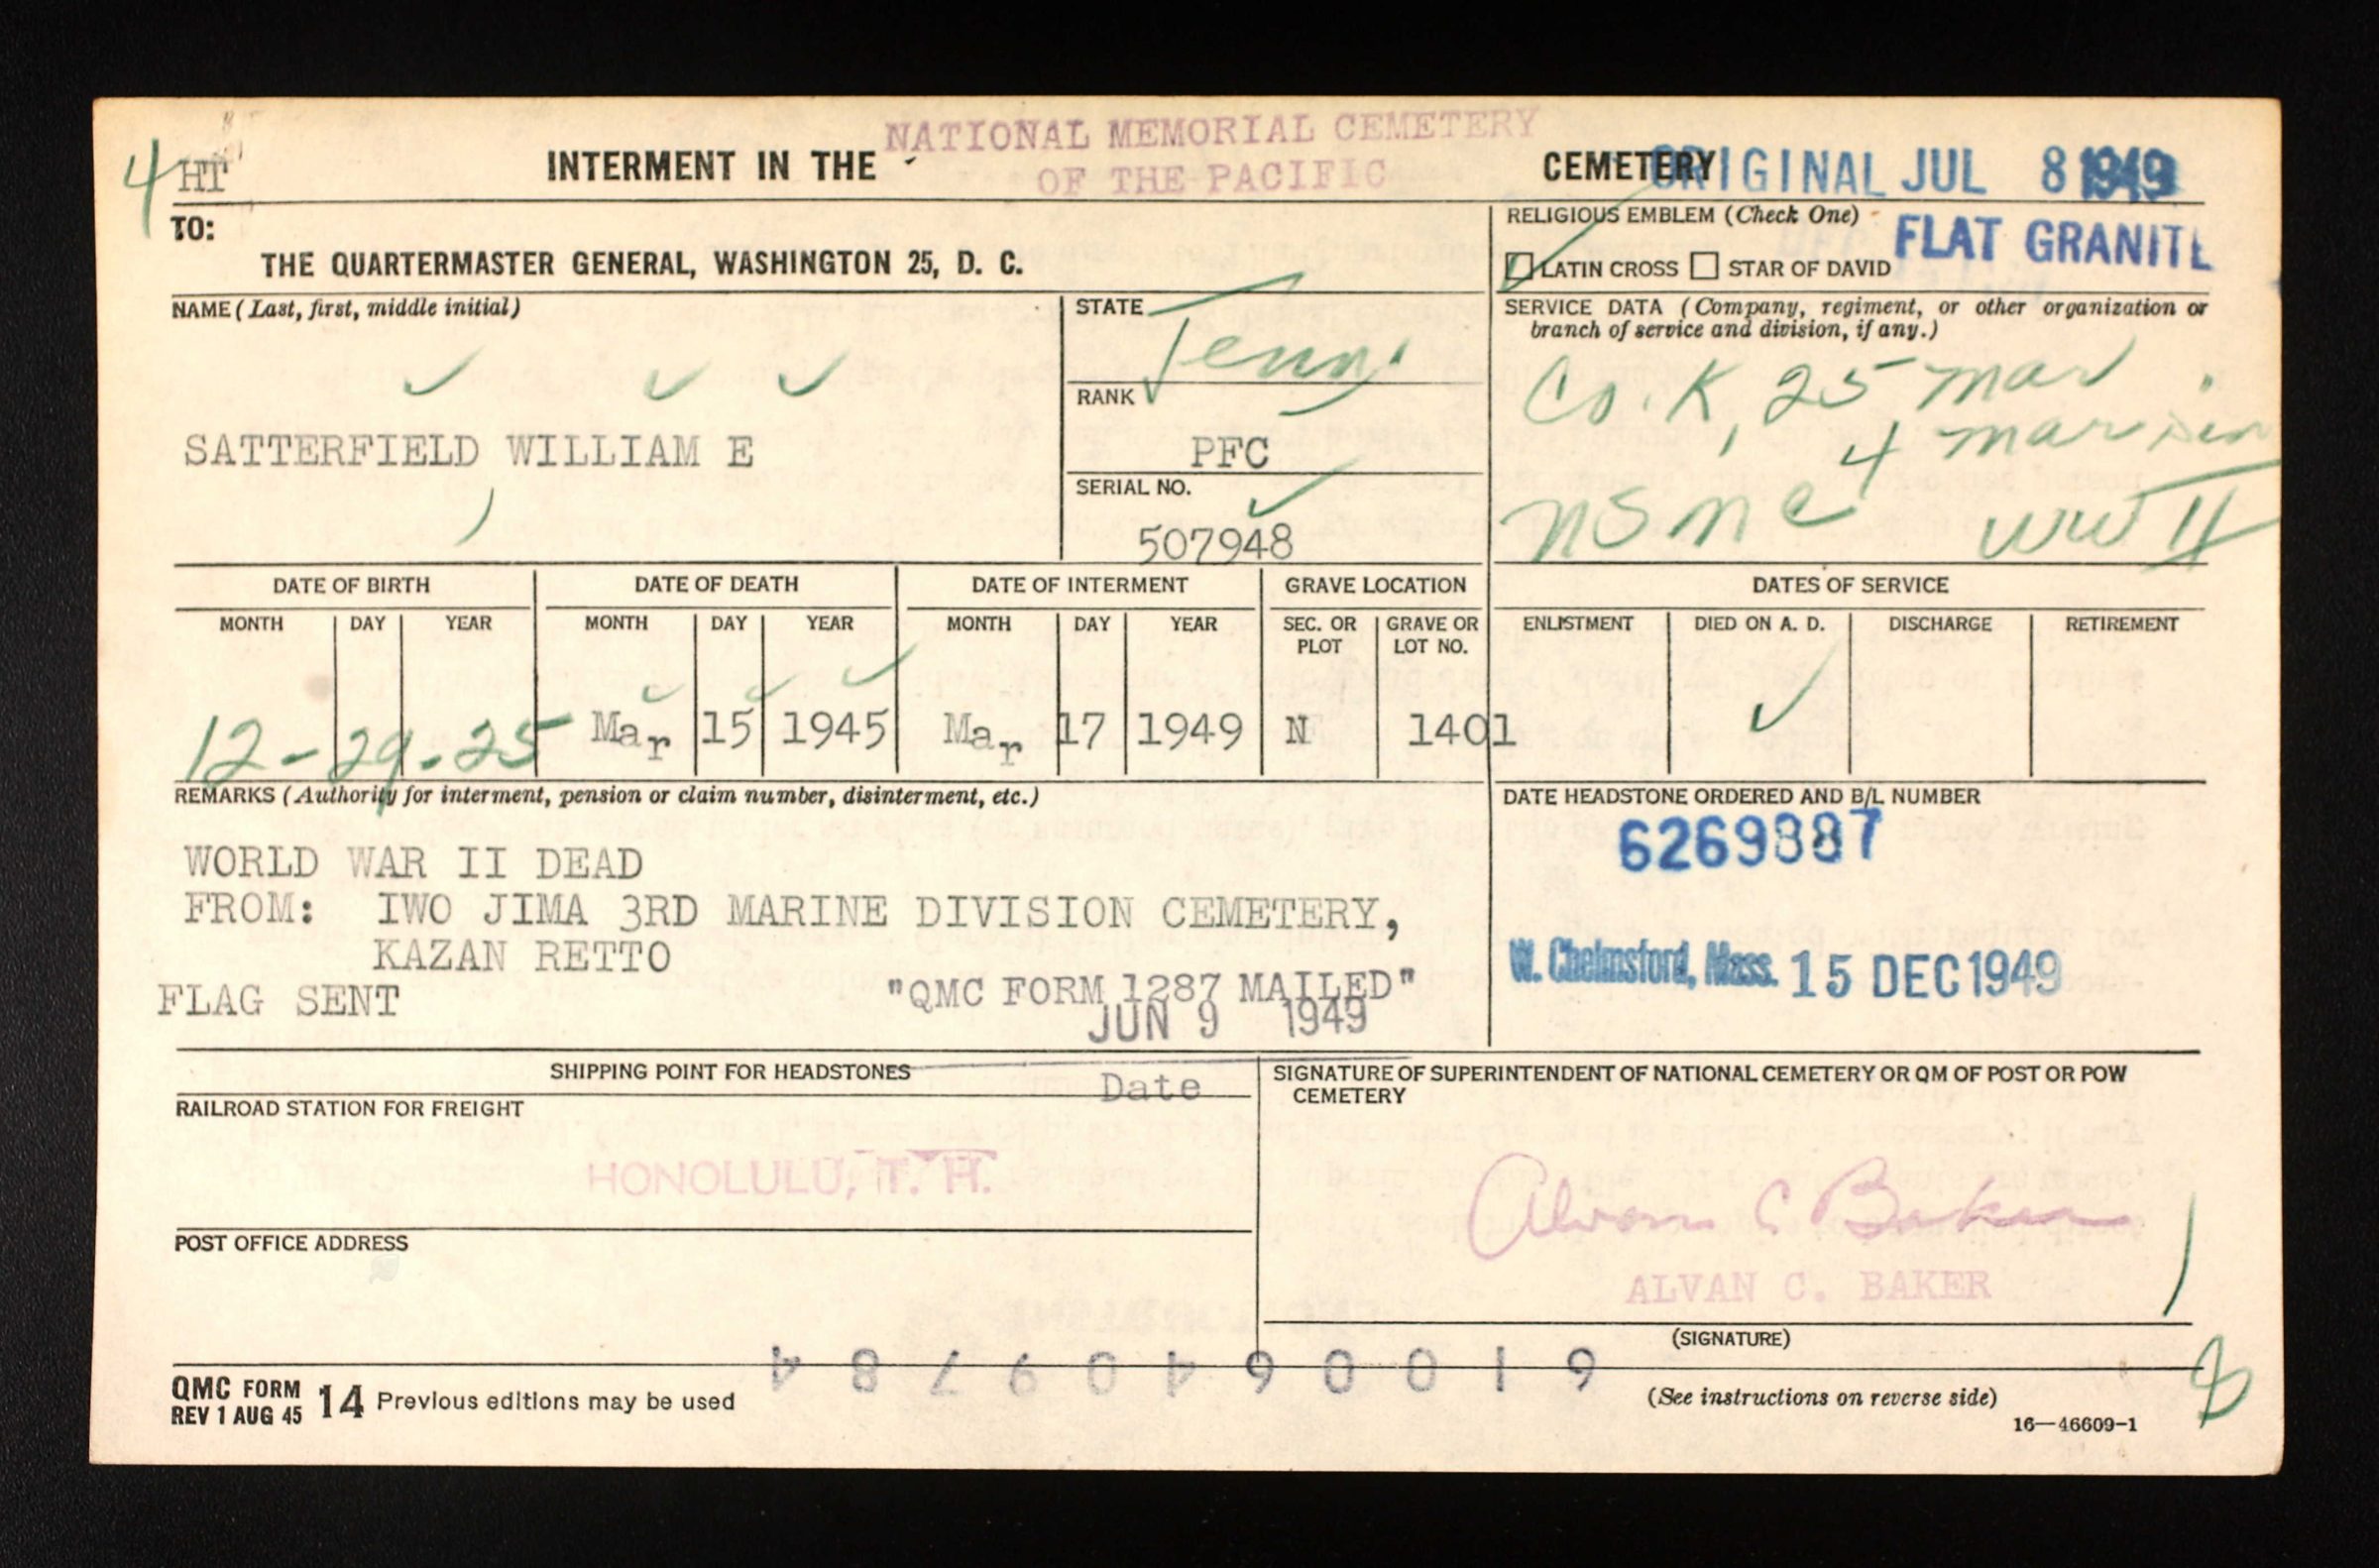 4 HT
NATIONAL MEMORIAL CEMETERY
INTERMENT IN THE OF THE PACIFIC CEMETERY ORIGINAL JUL 8 1949
TO:
THE QUARTERMASTER GENERAL, WASHINGTON 25, D. C.
RELIGIOUS EMBLEM (Check One)
LATIN CROSS STAR OF DAVID
FLAT GRANITE
NAME (Last, first, middle initial)
SATTERFIELD WILLIAM E
STATE
Tenn.
RANK
PFC
SERIAL NO.
507948
SERVICE DATA (Company, regiment, or other organization or
branch of service and division, if any.)
Co. K, 25 Mar
4 Mar Div
USMC WW II
DATE OF BIRTH
MONTH DAY YEAR
12-29-25
DATE OF DEATH
MONTH DAY YEAR
Mar 15 1945
DATE OF INTERMENT
MONTH DAY YEAR
Mar 17 1949
GRAVE LOCATION
SEC. OR PLOT
GRAVE OR LOT NO.
N 1401
DATES OF SERVICE
ENLISTMENT DIED ON A. D. DISCHARGE RETIREMENT
REMARKS (Authority for interment, pension or claim number, disinterment, etc.)
WORLD WAR II DEAD
FROM: IWO JIMA 3RD MARINE DIVISION CEMETERY,
KAZAN RETTO
FLAG SENT "QMC FORM 1287 MAILED"
JUN 9 1949
Date
DATE HEADSTONE ORDERED AND B/L NUMBER
6269887
W. Chelmsford, Mass. 15 DEC 1949
SHIPPING POINT FOR HEADSTONES
RAILROAD STATION FOR FREIGHT
HONOLULU, T. H.
POST OFFICE ADDRESS
SIGNATURE OF SUPERINTENDENT OF NATIONAL CEMETERY OR QM OF POST OR POW
CEMETERY
Alvan C Baker
ALVAN C. BAKER
(SIGNATURE)
61006409784
8
QMC FORM 14
REV 1 AUG 45
Previous editions may be used
(See instructions on reverse side)
16—46609-1